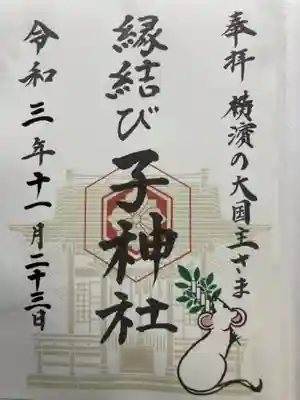 奉拝 横濱の大国主さま
縁結び
子神社
令和三年十一月二十三日